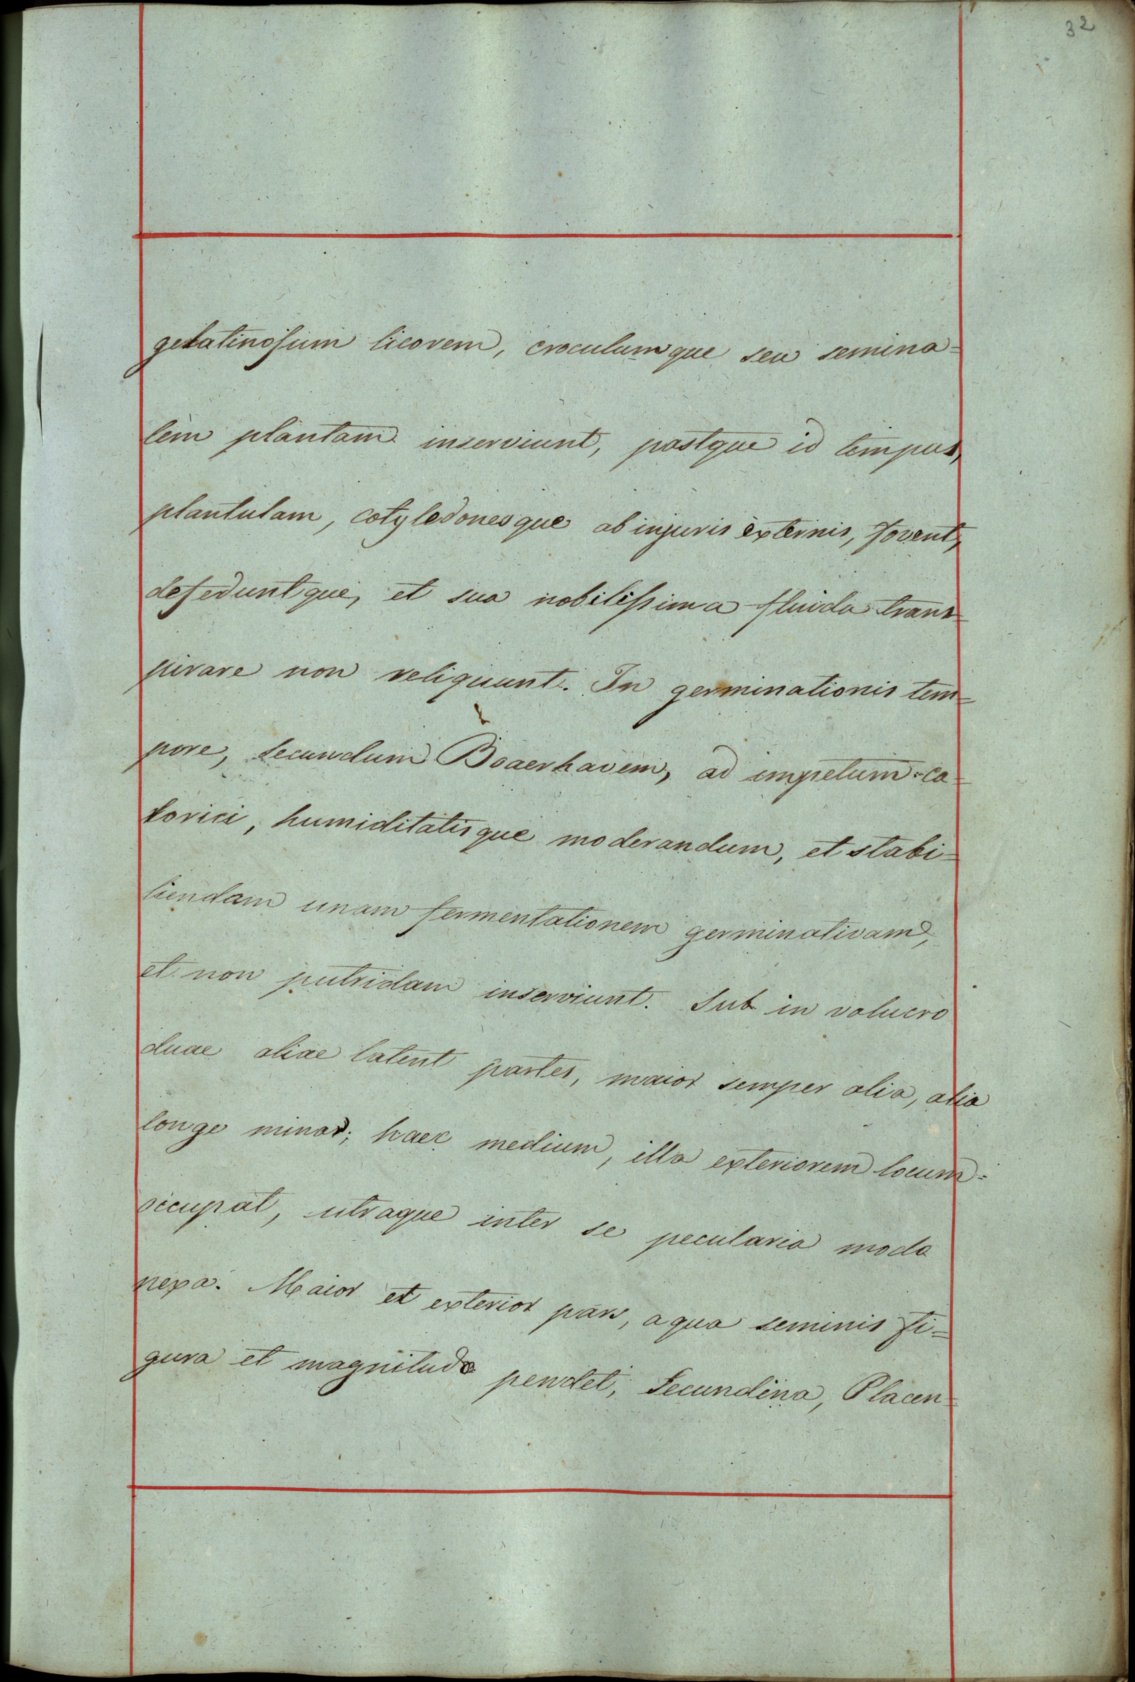 32
gelatinosum licorem, croculumque seu semina=
lem plantam inserviunt, postque id tempus,
plantulam, cotyledonesque ab injuris externis, fovent,
defeduntque, et sua nobilissima fluida trans=
pirare non reliquunt. In germinationis tem=
pore, secundum Boaerhavem, ad impetum ca=
lorici, humiditatisque moderandum, et stabi=
liendam unam fermentationem germinativam,
et non putridam inserviunt. Sub in volucro
duae aliae latent partes, maior semper alia, alia
longe minor; haec medium, illa exteriorem locum
occupat, utraque inter se pecularia modo
nexa. Maior et exterior pars, aqua seminis fi=
gura et magnitudo pendet, Secundina, Placen=